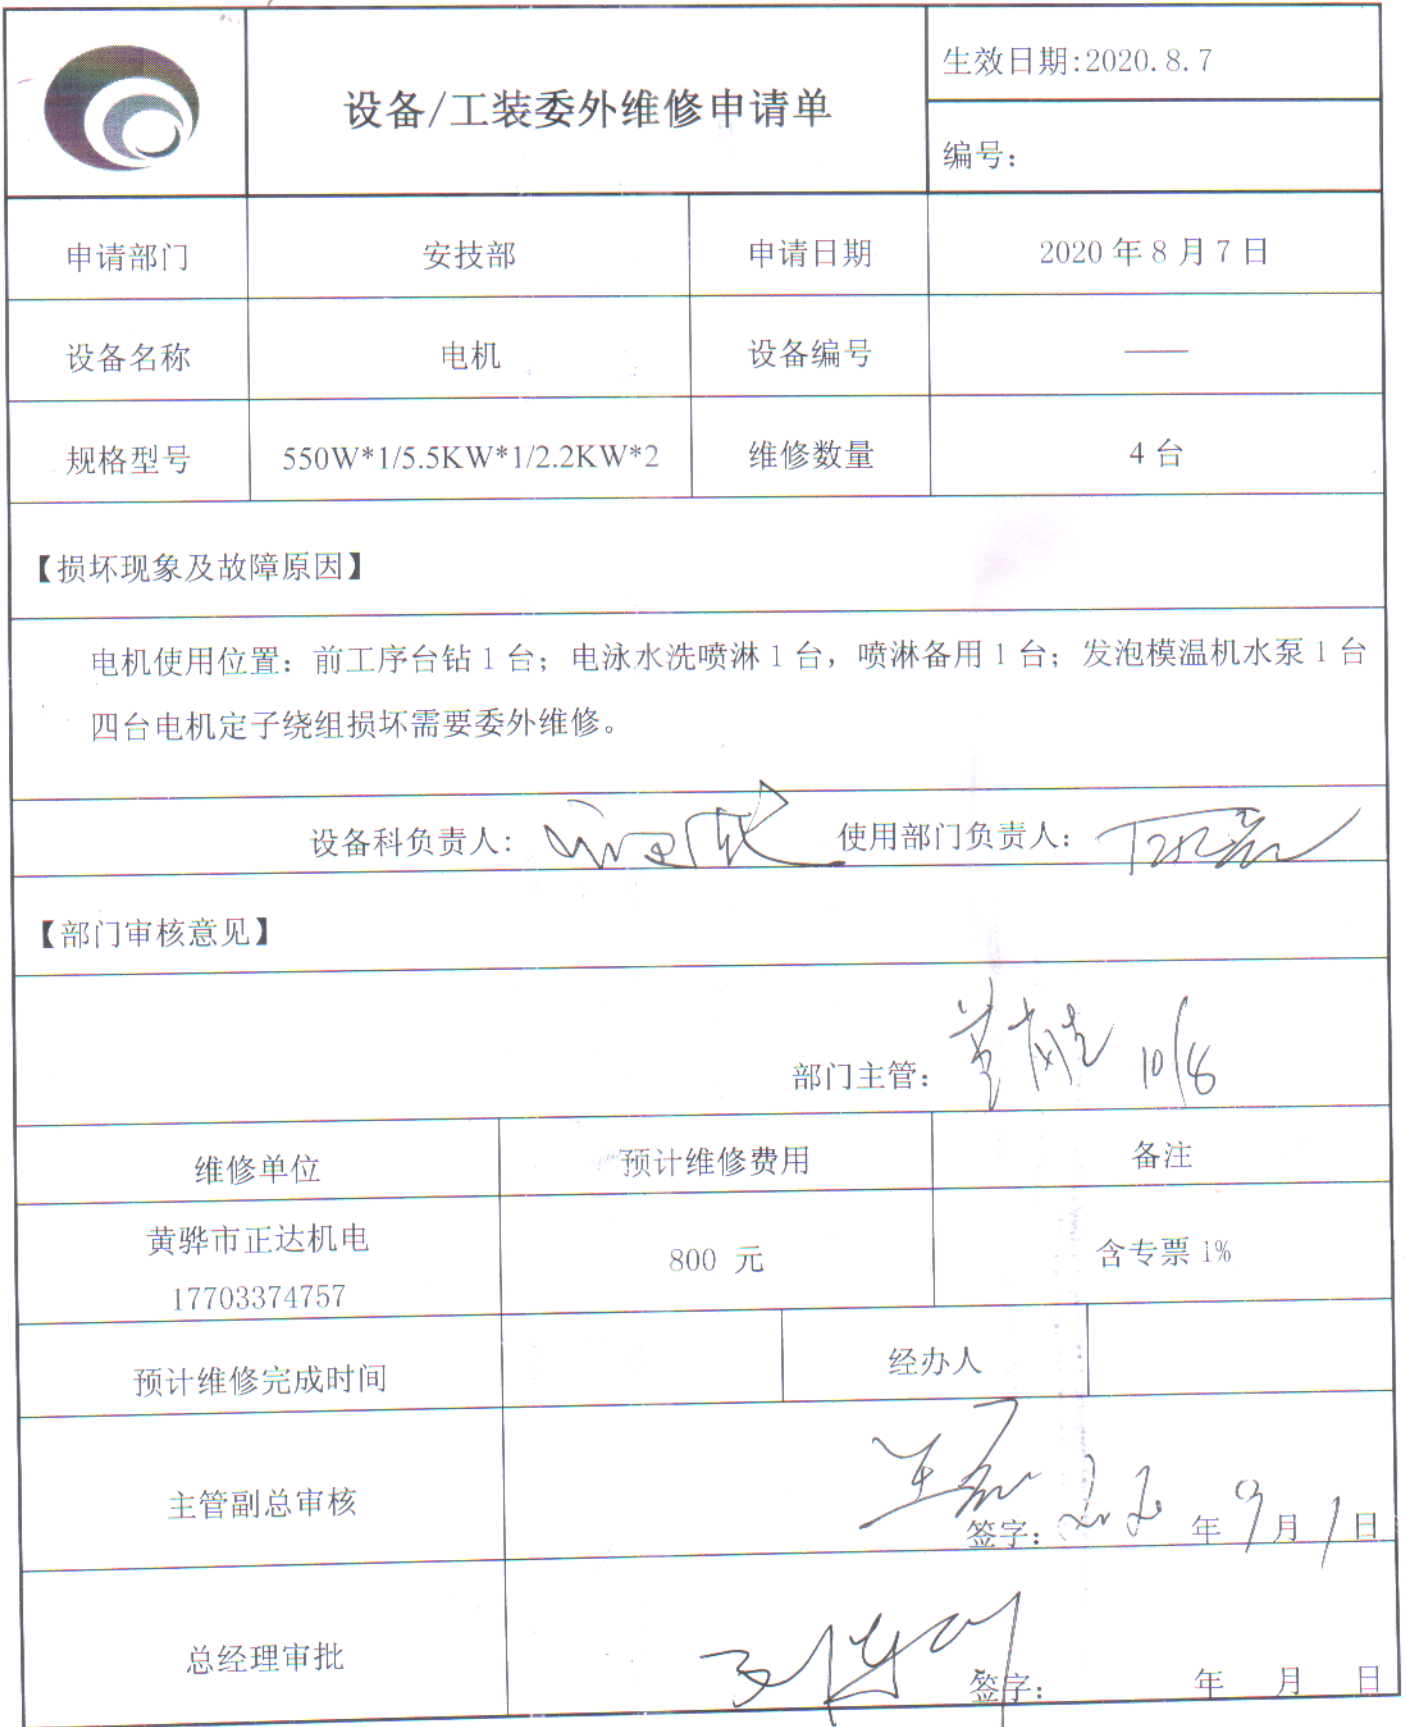 生效日期:2020.8.7
设备/工装委外维修申请单
编号：
申请部门 安技部 申请日期 2020 年 8 月 7 日
设备名称 电机 设备编号 ——
规格型号 550W*1/5.5KW*1/2.2KW*2 维修数量 4 台
【损坏现象及故障原因】
电机使用位置：前工序台钻 1 台；电泳水洗喷淋 1 台，喷淋备用 1 台；发泡模温机水泵 1 台
四台电机定子绕组损坏需要委外维修。
设备科负责人： 使用部门负责人：
【部门审核意见】
部门主管： 10/8
维修单位 预计维修费用 备注
黄骅市正达机电
17703374757
800 元 含专票 1%
预计维修完成时间 经办人
主管副总审核 签字： 年 9 月 1 日
总经理审批 签字： 年 月 日